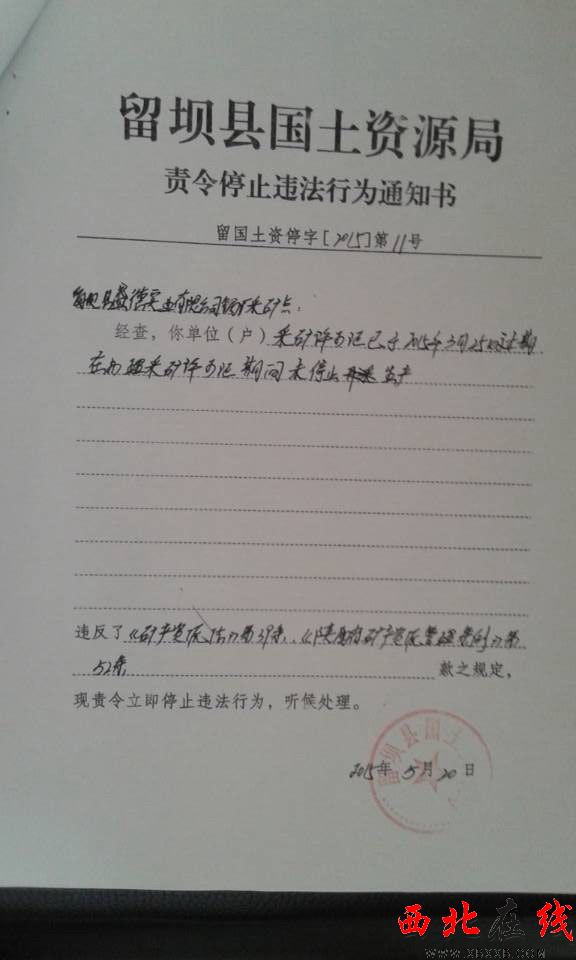 留坝县国土资源局
责令停止违法行为通知书
留国土资停字[2015]第11号
留坝县 德实业有限公司 采矿点：
经查，你单位（户）采矿许可证已于2015年3月25日过期
在办理采矿许可证期间未停止开采生产
违反了《矿产资源法》第39条、《陕西省矿产资源管理条例》第
52条 款之规定，
现责令立即停止违法行为，听候处理。
2015年5月20日
留坝县国土
西北在线
WWW.XBXXB.COM